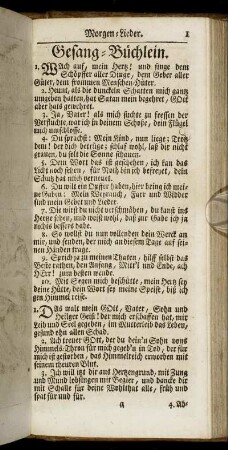 Morgen-Lieder. 1
Gesang-Büchlein.
1. WAch auf, mein Hertz! und singe dem
Schöpffer aller Dinge, dem Geber aller
Güter, dem frommen Menschen-Hüter.
2. Heunt, als die dunckeln Schatten mich gantz
umgeben hatten, hat Satan mein begehret, GOtt
aber hats gewehret.
3. Ja, Vater! als mich suchte zu fressen der
Verfluchte, war ich in deinem Schoose, dein Flügel
mich umschlosse.
4. Du sprachst: Mein Kind, nun liege: Trotz
dem! der dich betriege: schlaf wohl, laß dir nicht
grauen, du solt die Sonne schauen.
5. Dein Wort das ist geschehen, ich kan das
Licht noch sehen, für Noth bin ich befreyet, dein
Schutz hat mich verneuet.
6. Du wilt ein Opfer haben, hier bring ich meine
Gaben: Mein Weyrauch, Farr und Widder
sind mein Gebet und Lieder.
7. Die wirst du nicht verschmähen, du kanst ins
Hertze sehen, und weist wohl, daß zur Gabe ich ja
nichts bessers habe.
8. So wollst du nun vollenden dein Werck an
mir, und senden, der mich an diesem Tage auf seinen
Händen trage.
9. Sprich ja zu meinen Thaten, hilf selbst das
Beste rathen, den Anfang, Mitt'l und Ende, ach
HErr! zum besten wende.
10. Mit Segen mich beschütte, mein Hertz sey
deine Hütte, dein Wort sey meine Speise, biß ich
gen Himmel reise.
1. DAs walt mein GOtt, Vater, Sohn und
Heiliger Geist! der mich erschaffen hat, mir
Leib und Seel gegeben, im Mutterleib das Leben,
gesund ohn allen Schad.
2. Ach treuer GOtt, der du dein'n Sohn vons
Himmels-Thron für mich gegeb'n in Tod, der für
mich ist gestorben, das Himmelreich erworben mit
seinem theuren Blut.
3. Ich will dir aus Hertzengrund, mit Zung
und Mund lobsingen mit Begier, und dancke dir
mit Schalle für deine Wohlthat alle, früh und
spat für und für.
a 4. Ab-